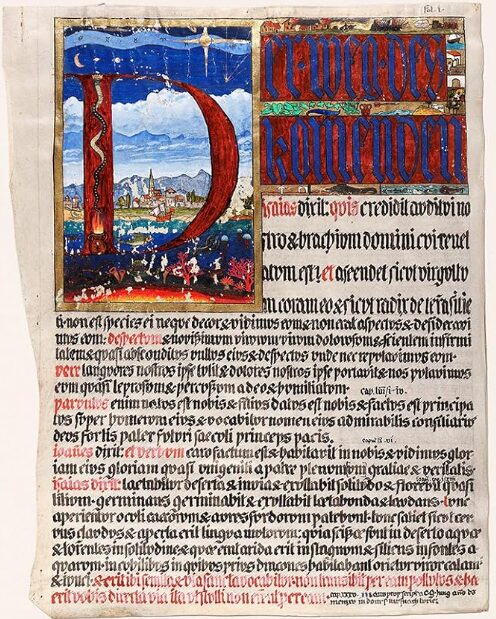 Fol. i.
der · weg · des
kom̅enden
isaias dixit: quis credidit auditui no
stro & brachium domini cui revel
atum est? et ascendet sicut virgultu
m coram eo & sicut radix de terra sitie
ti · non est species ei neque decor & vidimus eum & non erat aspectus & desideravi
mus eum: despectum & novissimum virorum virum dolorum & scientem infirmi
tatem & quasi absconditus vultus eius & despectus unde nec reputavimus eum.
vere languores nostros ipse tulit & dolores nostros ipse portavit & nos putavimus
eum quasi leprosum & percussum a deo & humiliatum. cap. liii/i-iv.
parvulus enim natus est nobis & filius datus est nobis & factus est principa
tus super humerum eius & vocabitur nomen eius admirabilis consiliarius
deus fortis pater futuri saeculi princeps pacis. caput ix. vi.
ioannes dixit: et verbum caro factum est & habitavit in nobis & vidimus glor
iam eius gloriam quasi unigeniti a patre plenum gratiae & veritatis.
isaias dixit: laetabitur deserta & invia & exultabit solitudo & florebit quasi
lilium. germinans germinabit & exultabit laetabunda & laudans. tunc
aperientur oculi caecorum & aures surdorum patebunt. tunc saliet sicut cer
vus claudus & aperta erit lingua mutorum: quia scissae sunt in deserto aquae
& torrentes in solitudine & quae erat arida erit in stagnum & sitiens in fontes a
quarum. in cubilibus in quibus prius dracones habitabant orietur viror calami
& iunci. & erit ibi semita & via sancta vocabitur. non transibit per eam pollutus & ha
ec erit vobis directa via ita ut stulti non errent per eam. cap. xxxv.